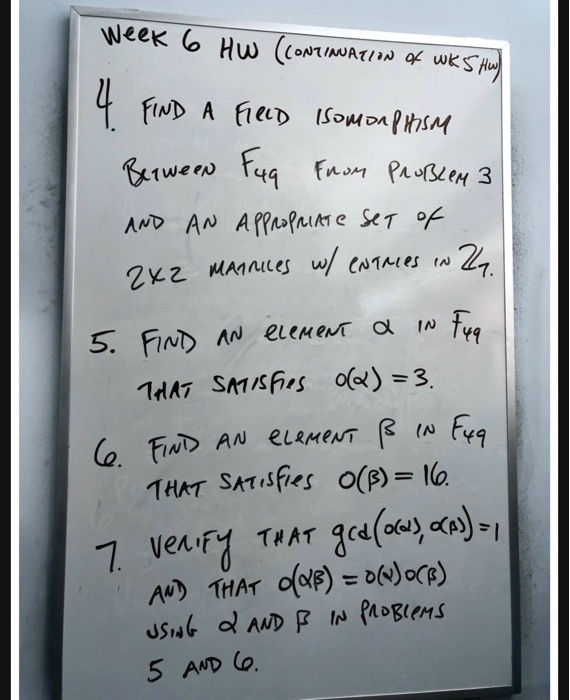 WEEK 6 HW (CONTINUATION OF WK 5 HW)
4. FIND A FIELD ISOMORPHISM
BETWEEN F49 FROM PROBLEM 3
AND AN APPROPRIATE SET OF
2X2 MATRICES W/ ENTRIES IN Z7.
5. FIND AN ELEMENT α IN F49
THAT SATISFIES O(α) = 3.
6. FIND AN ELEMENT β IN F49
THAT SATISFIES O(β) = 16.
7. VERIFY THAT gcd(O(α), O(β)) = 1
AND THAT O(αβ) = O(α)O(β)
USING α AND β IN PROBLEMS
5 AND 6.